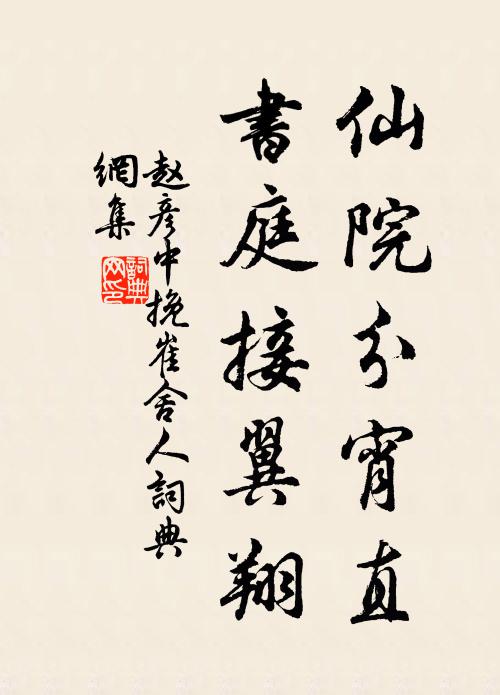 仙院分宵直
書庭接翼翔
赵彦中挽崔舍人詞典
網集
詞典
网印